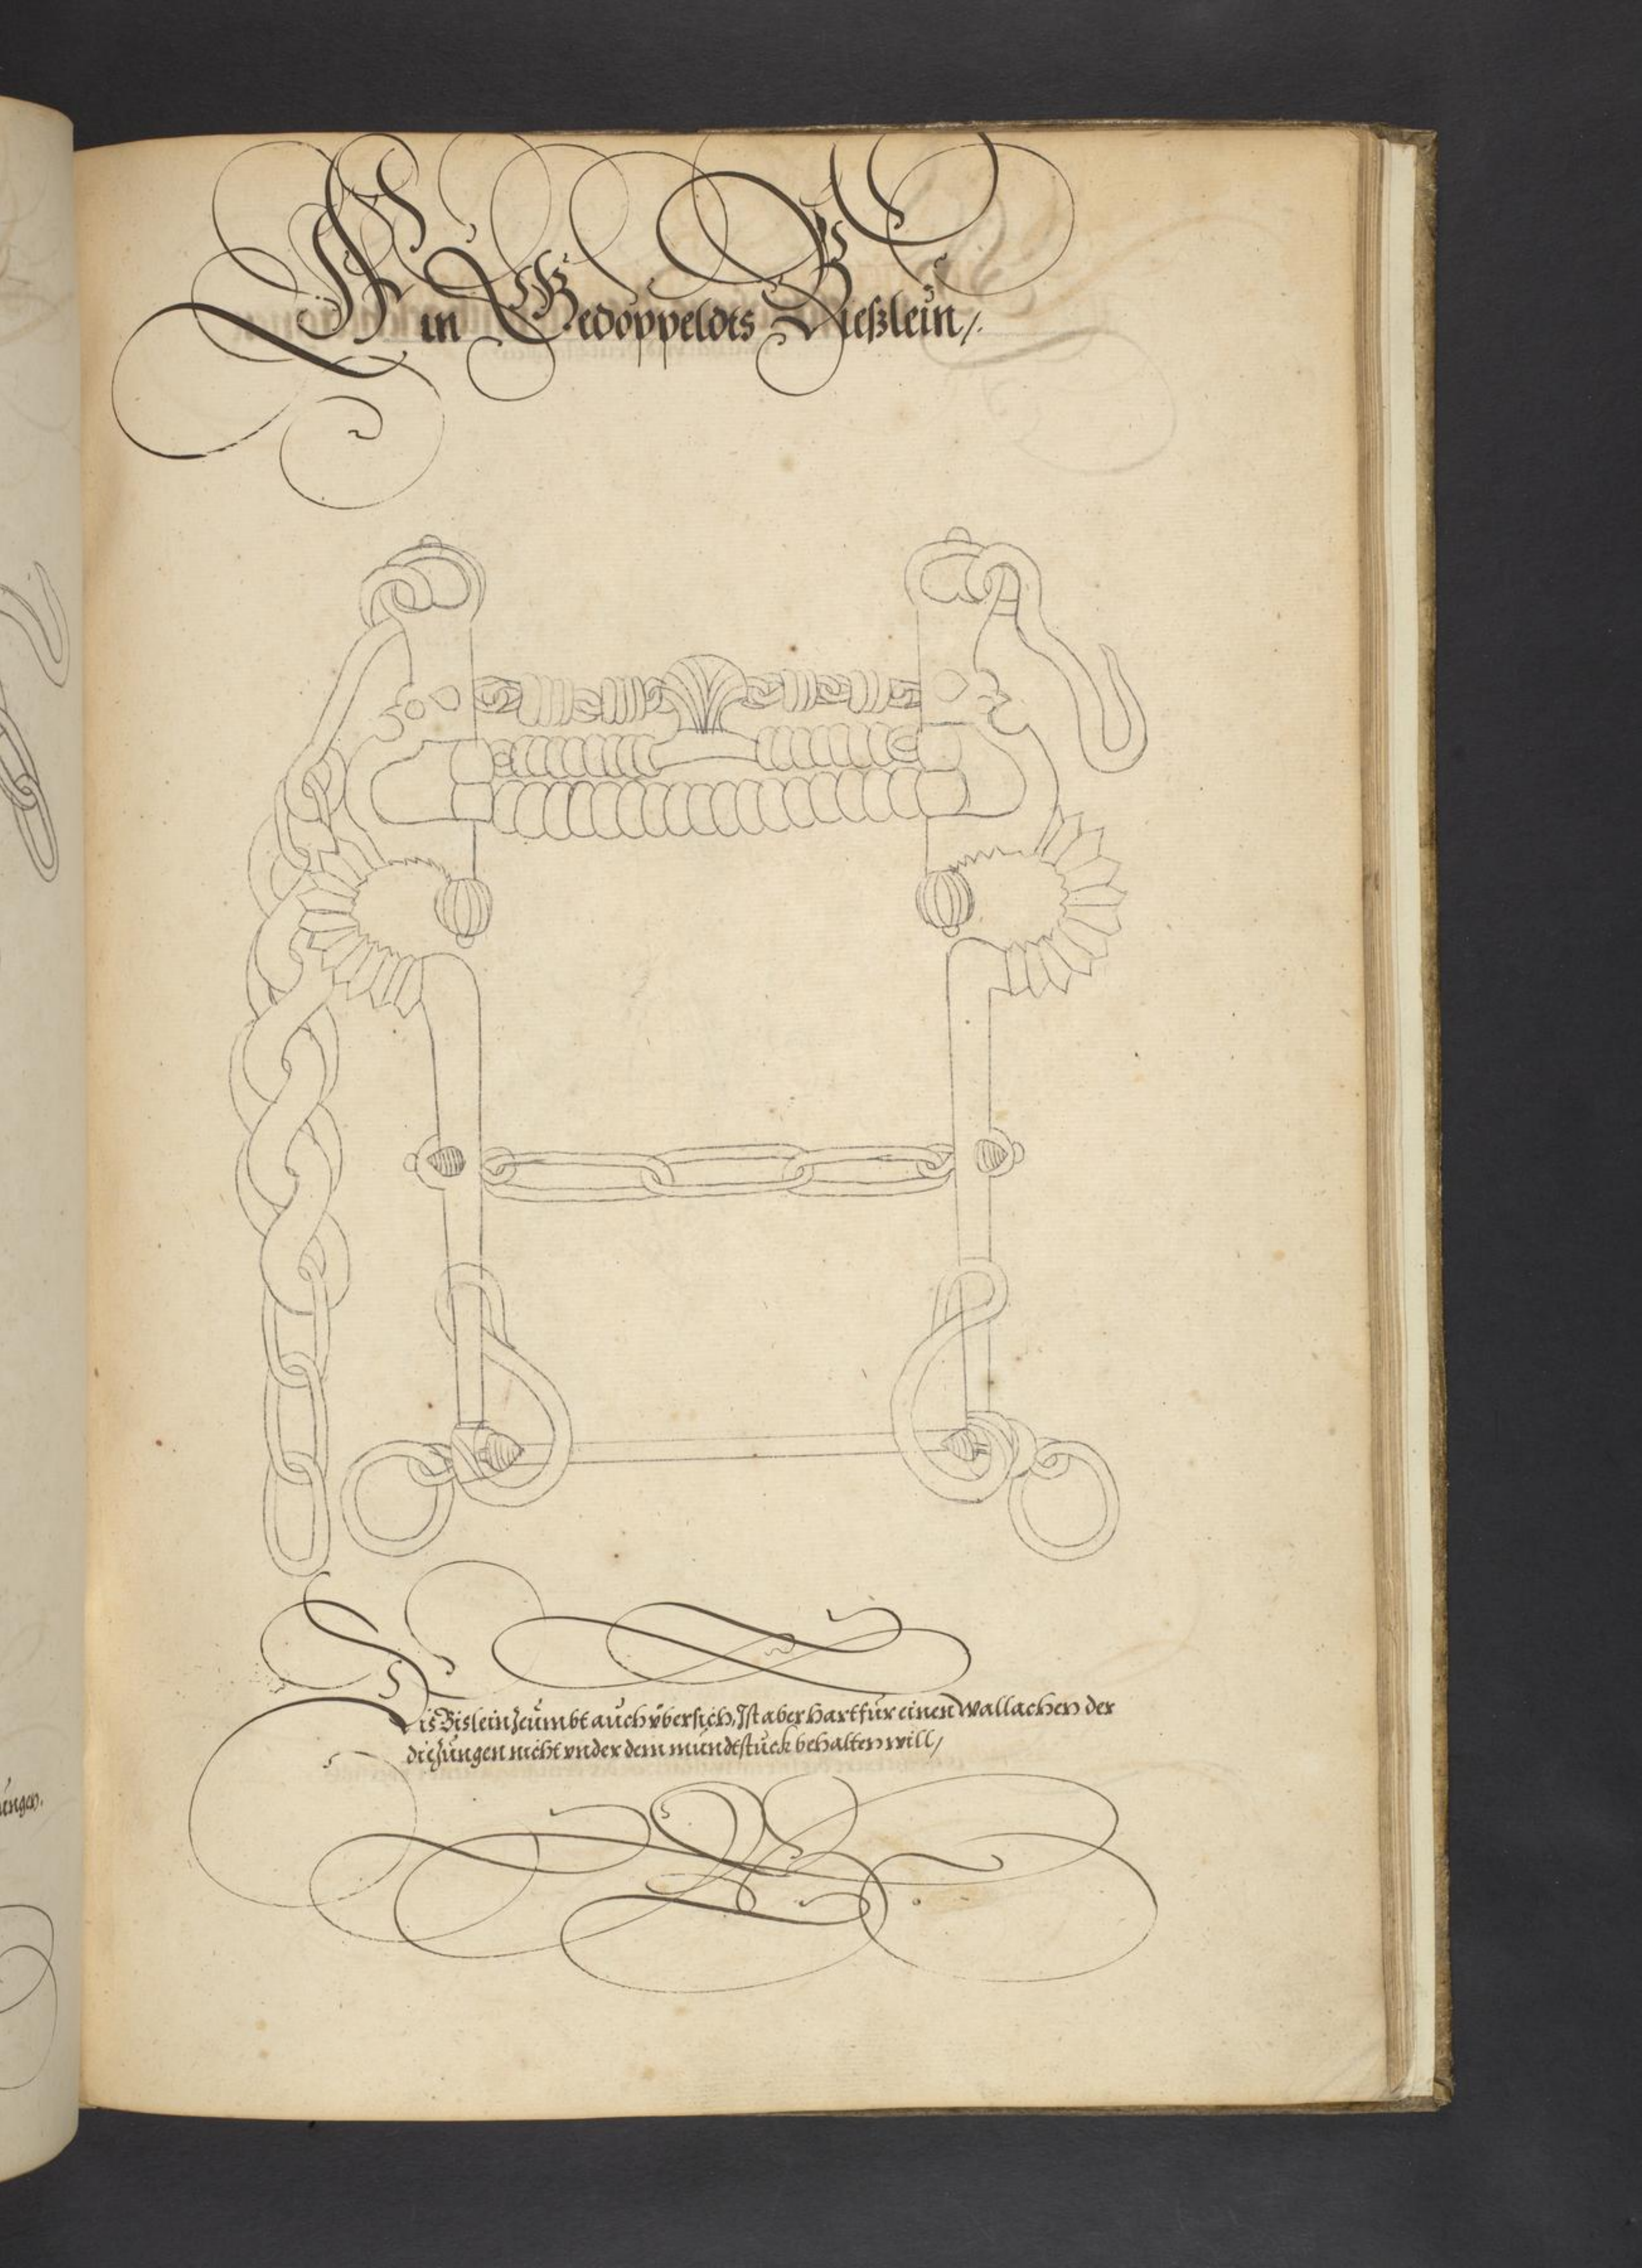 Ein Gedoppeldts Bießlein /.
Dis Bislein zeumbt auch vbersich, Ist aber hart für einen Wallachen der
die Zungen nicht vnder dem mundtstuck behalten will /
ungen.